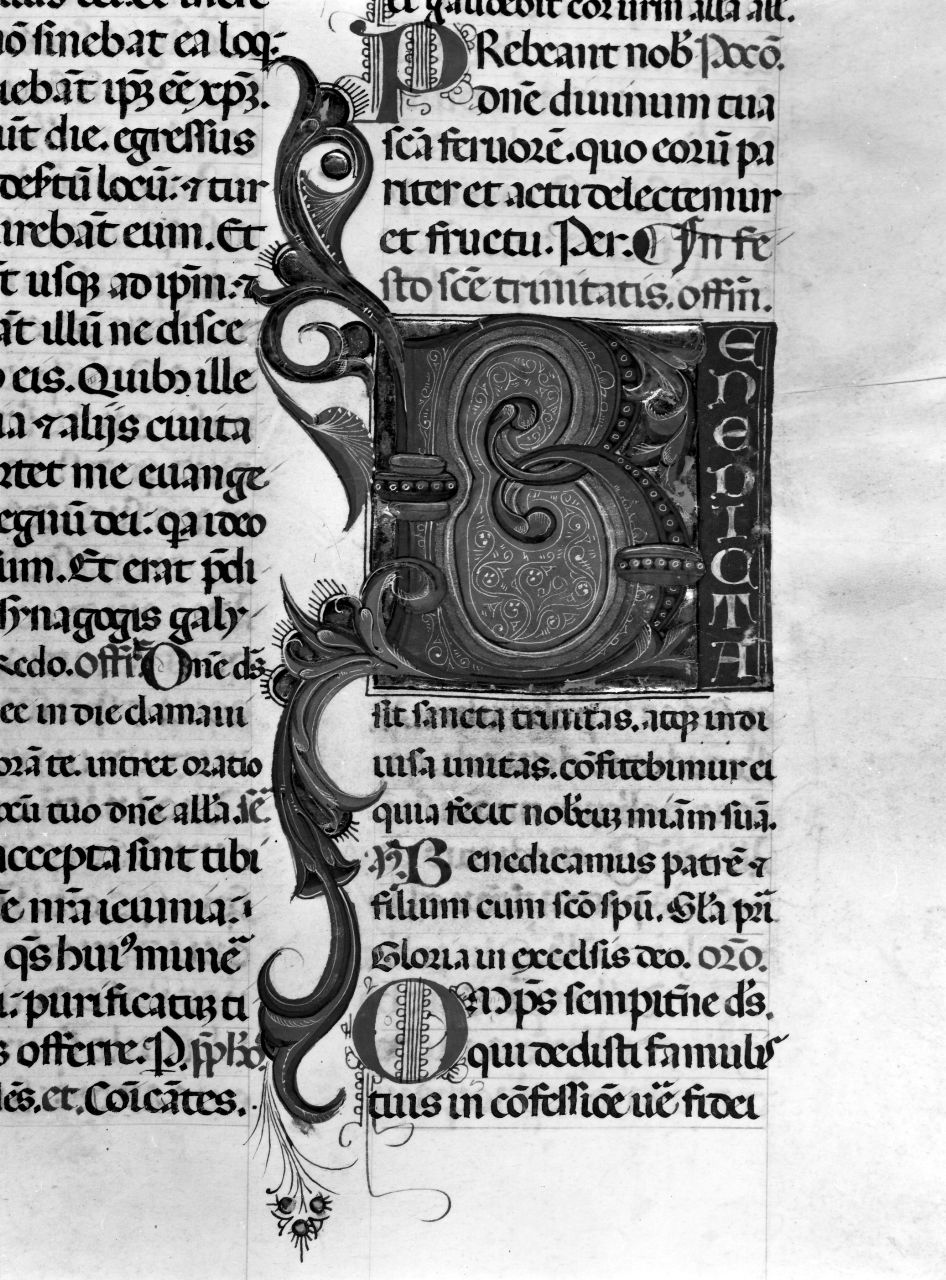 nō sinebat ea loq
uebāt ip̄ꝫ eē xp̄ꝫ.
die. egressus
locū: ⁊ tur
urebāt eum. Et
usqꝫ ad ip̄m: ⁊
āt illū ne disce
eis. Quibꝰ ille
ia ⁊ alijs ciuita
rtet me euange
egnū dei: qꝛ ideo
um. Et erat p̄di
synagogis galy
Offr̄. Dn̄e ds̄
ec in die clamaui
orā te. intret oratio
tuo dn̄e all'a.
accepta sint tibi
nr̄a ieiunia:
qs̄ huiꝰ munē
purificatiꝫ ti
s offerre. P.
et. Cōicātes.
et gaudebit cor urm̄ alla all.
PRebeant nob̄ Pocō.
dn̄e diuinum tua
scā feruorē. quo eorū pa
riter et actu delectemur
et fructu. Per. In fe
sto scē trinitatis. offm̄.
BENEDICTA
sit sancta trinitas. atqꝫ indi
uisa unitas. cōfitebimur ei
quia fecit nob̄cuꝫ mīam suā.
Benedicamus patrē ⁊
filium cum scō spū. Gl'a pr̄i
Gloria in excelsis deo. orō.
OMp̄s sempitn̄e ds̄.
qui dedisti famulis
tuis in cōfessiōe ue᷑ fidei